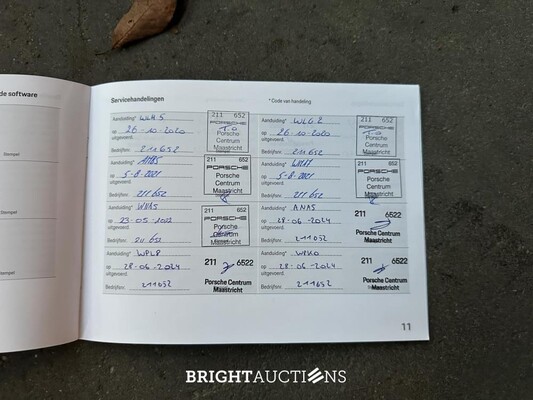 de software
Stempel
Stempel
Stempel
Servicehandelingen
* Code van handeling
Aanduiding* WLH5
op 26-10-2020
uitgevoerd:
Bedrijfsnr. 211652
211 652
PORSCHE
Porsche
Centrum
Maastricht
Aanduiding* WLGZ
op 26-10-2020
uitgevoerd:
Bedrijfsnr. 211652
211 652
PORSCHE
Porsche
Centrum
Maastricht
Aanduiding*
op 5-8-2021
uitgevoerd:
Bedrijfsnr. 211652
211 652
PORSCHE
Porsche
Centrum
Maastricht
Aanduiding*
op 5-8-2021
uitgevoerd:
Bedrijfsnr. 211652
211 652
PORSCHE
Porsche
Centrum
Maastricht
Aanduiding*
op 23-05-2022
uitgevoerd:
Bedrijfsnr. 211652
211 652
PORSCHE
Porsche
Centrum
Maastricht
Aanduiding* ANAS
op 28-06-2024
uitgevoerd:
Bedrijfsnr. 211652
211 6522
Porsche Centrum
Maastricht
Aanduiding* WPL8
op 28-06-2024
uitgevoerd:
Bedrijfsnr. 211652
211 6522
Porsche Centrum
Maastricht
Aanduiding* WPK0
op 28-06-2024
uitgevoerd:
Bedrijfsnr. 211652
211 6522
Porsche Centrum
Maastricht
11
BRIGHTAUCTIONS